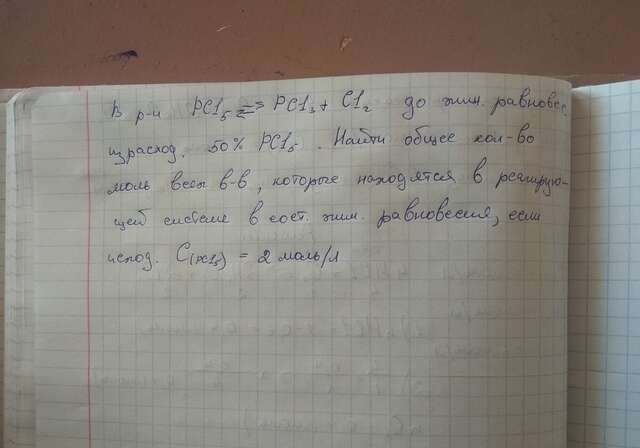 В р-и PCl₅ ⇄ PCl₃ + Cl₂ до хим. равновес.
израсход. 50% PCl₅. Найти общее кол-во
моль всех в-в, которые находятся в реагирую-
щей системе в сост. хим. равновесия, если
исход. C(PCl₅) = 2 моль/л